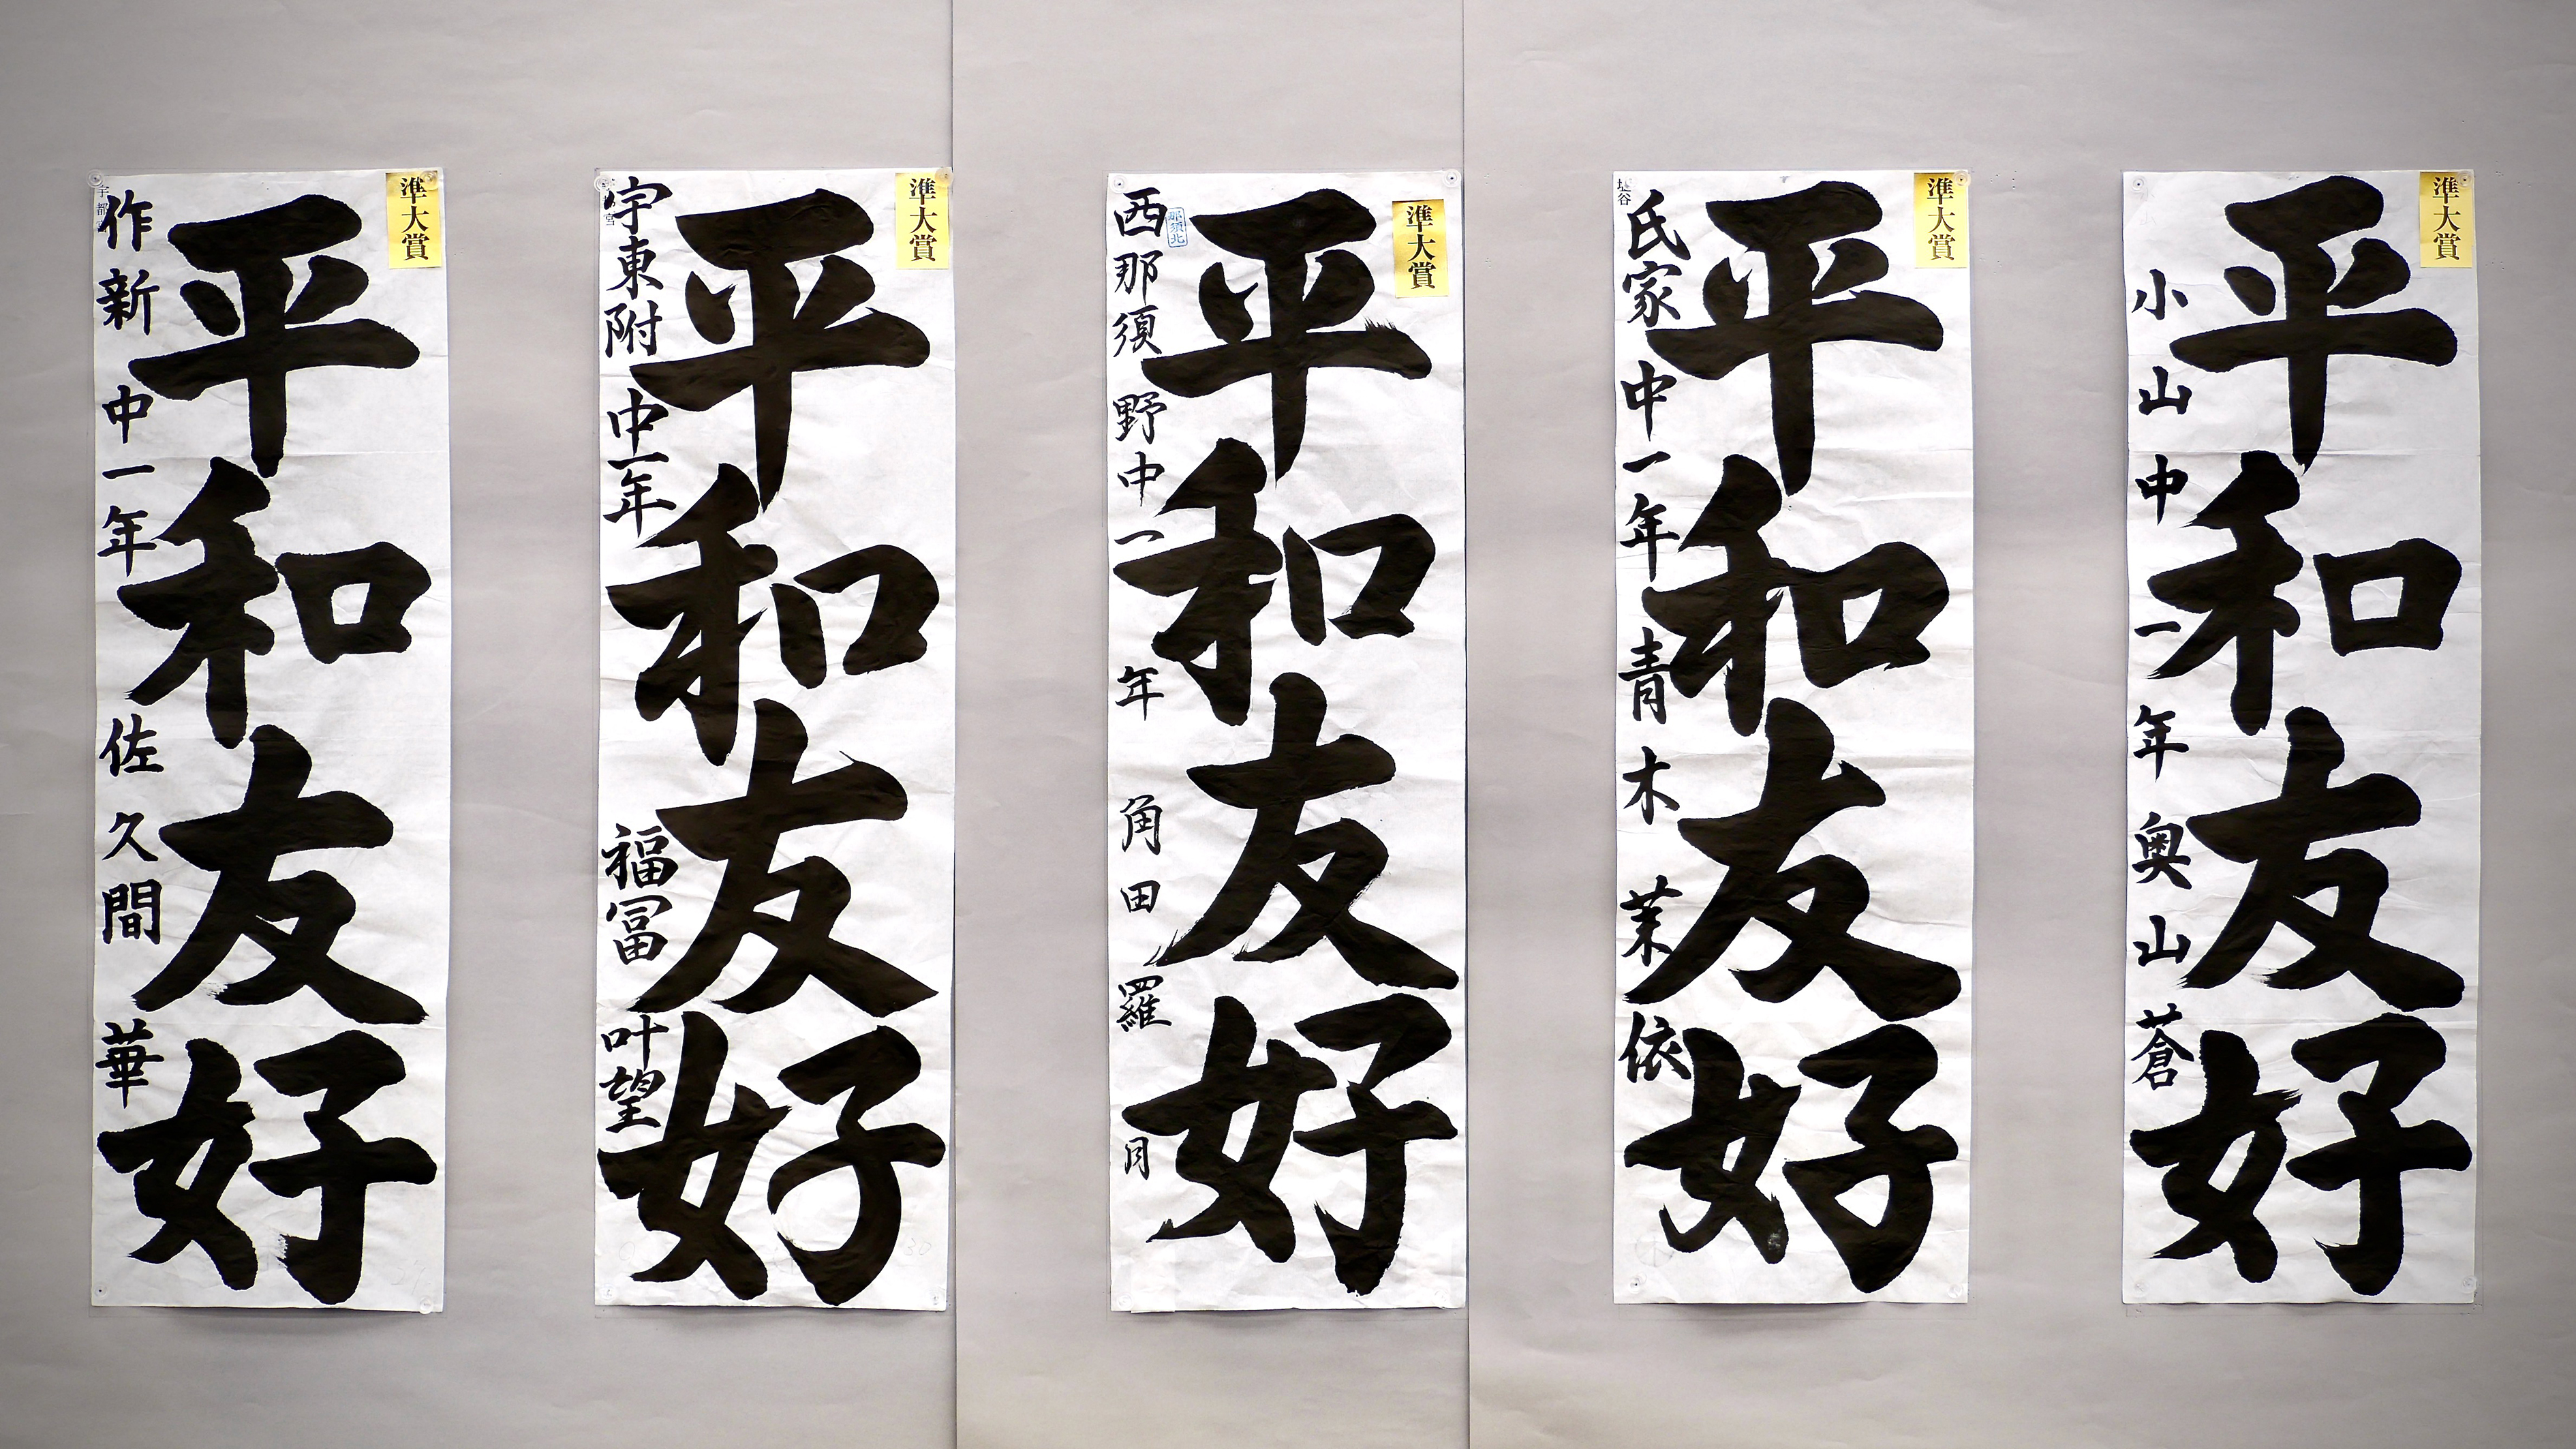 準大賞
平和友好
小山中一年 奥山蒼
準大賞
平和友好
塩谷
氏家中一年 青木茉依
準大賞
平和友好
那須北
西那須野中一年 角田羅月
準大賞
平和友好
宇東附中一年 福冨叶望
準大賞
平和友好
作新中一年 佐久間華